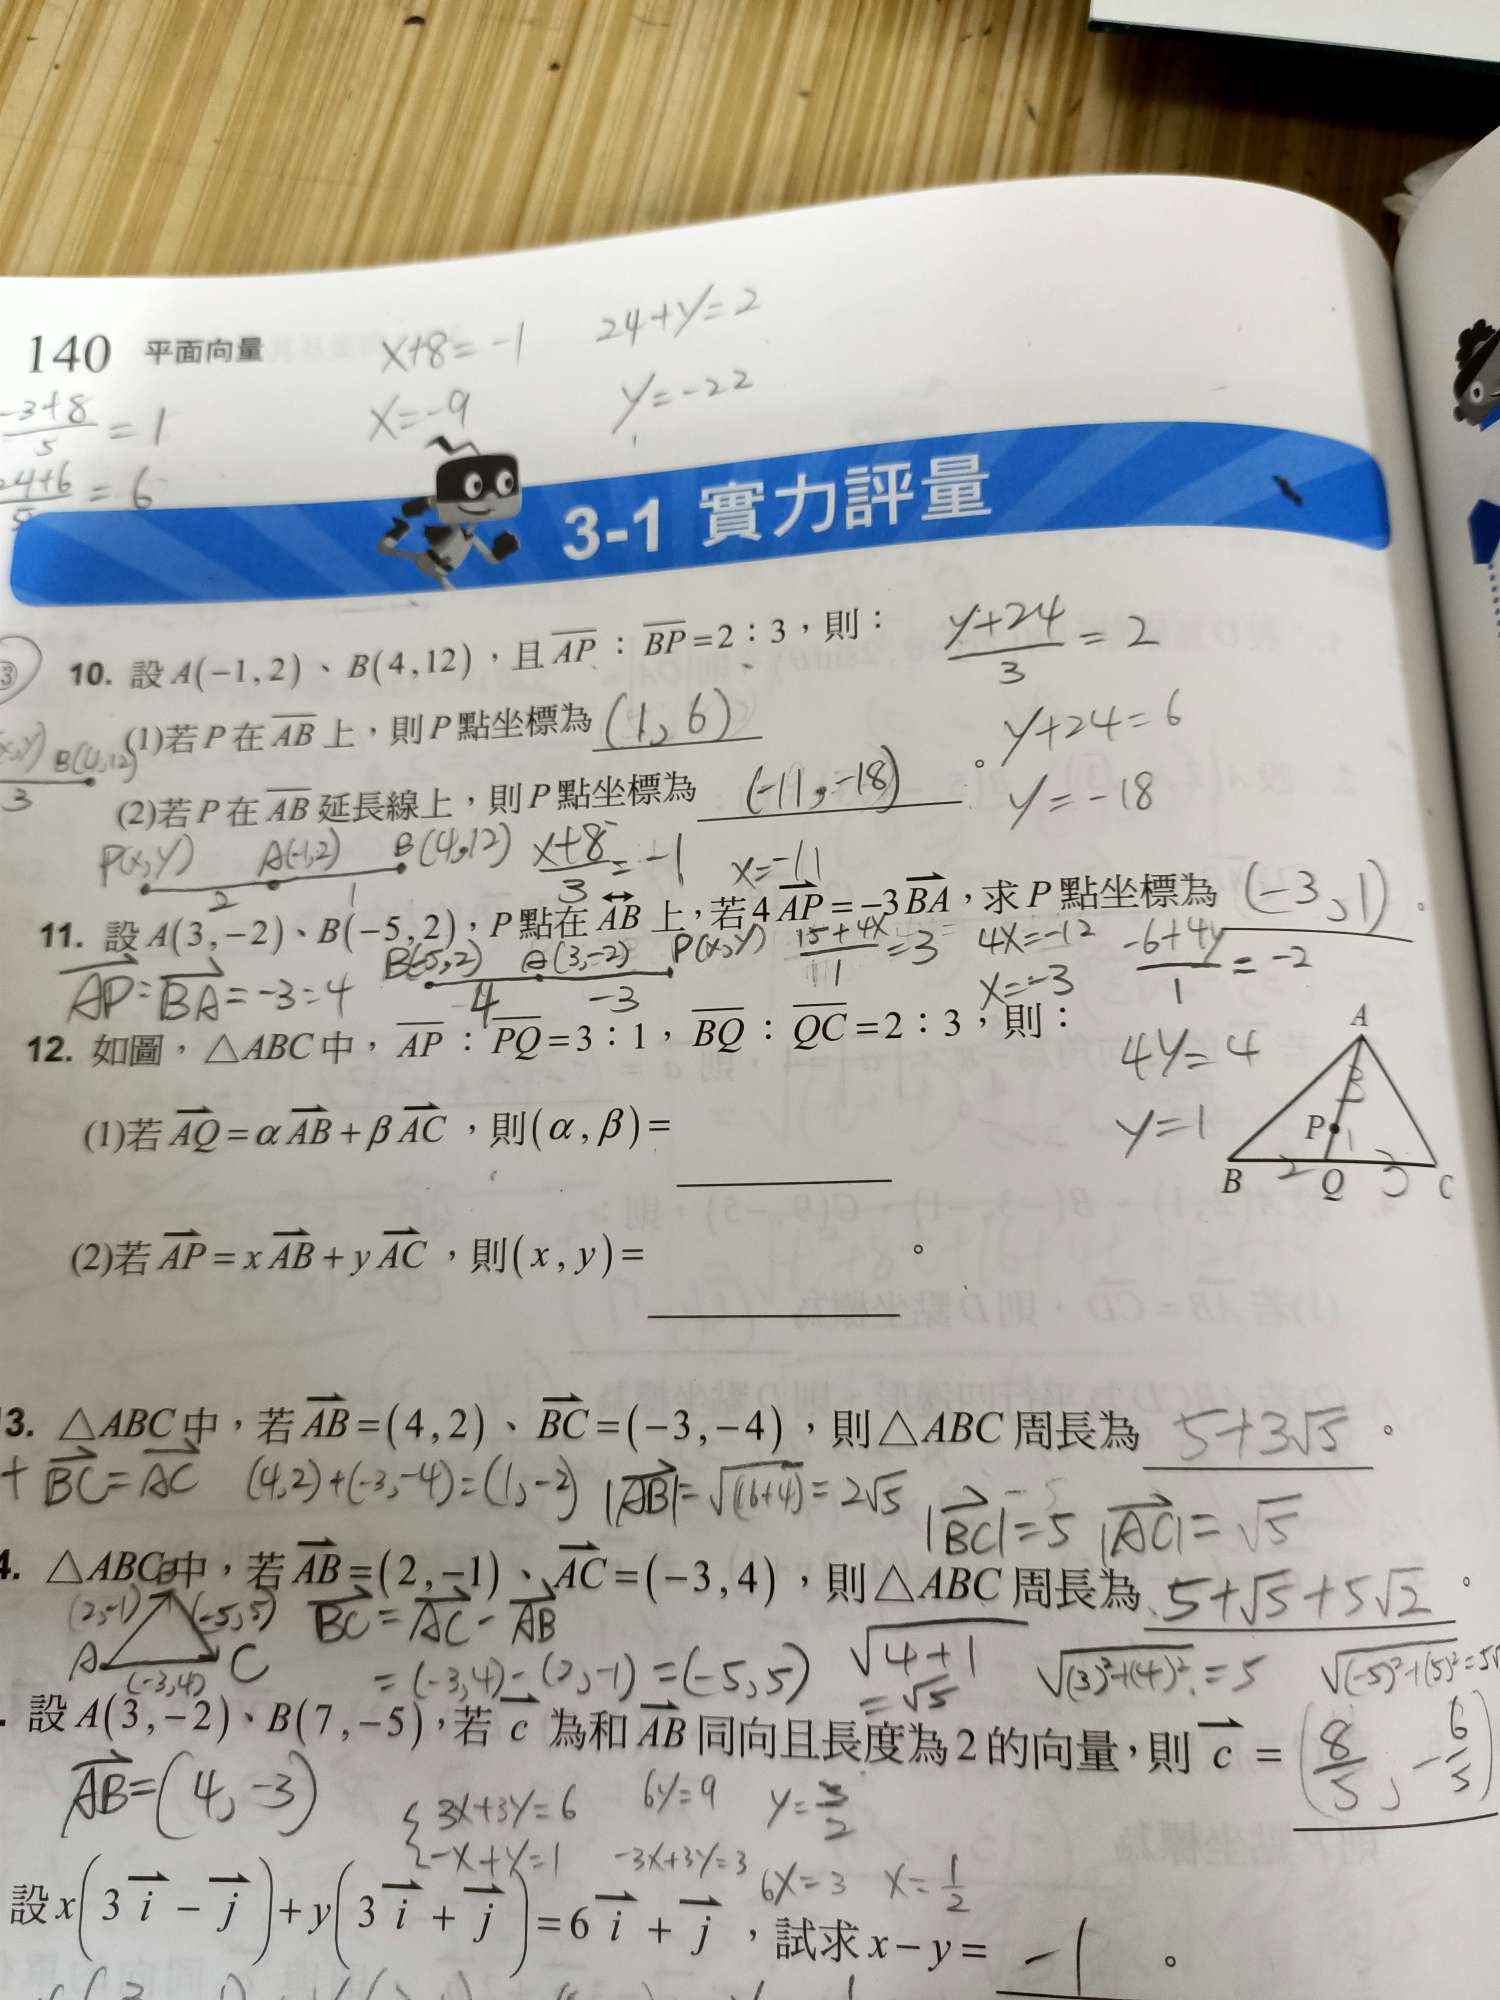 140 平面向量
x+8=-1
24+y=2
x=-9
y=-22
-3+8/5 = 1
24+6/5 = 6
3-1 實力評量
③
10. 設A(-1,2)、B(4,12),且AP:BP=2:3,則:
y+24/3 = 2
(1)若P在AB上,則P點坐標為 (1,6)
y+24=6
B(4,12)
3
(2)若P在AB延長線上,則P點坐標為 (-11,-18)。
y=-18
P(x,y) A(-1,2) B(4,12) x+8/3 = -1 x=-11
2 1
11. 設A(3,-2)、B(-5,2),P點在AB上,若4AP=-3BA,求P點坐標為 (-3,1)。
B(-5,2) A(3,-2) P(x,y) 15+4x/1 = 3 4x=-12 -6+4y/1 = -2
AP=BA=-3=4 4 -3 x=-3
12. 如圖,△ABC中,AP:PQ=3:1,BQ:QC=2:3,則:
4y=4
y=1
A
3
P 1
B 2 Q 3 C
(1)若AQ=αAB+βAC,則(α,β)=
(2)若AP=xAB+yAC,則(x,y)= 。
3. △ABC中,若AB=(4,2)、BC=(-3,-4),則△ABC周長為 5+3√5。
+BC=AC (4,2)+(-3,-4)=(1,-2) |AB|=√(16+4)=2√5 |BC|=5 |AC|=√5
4. △ABC中,若AB=(2,-1)、AC=(-3,4),則△ABC周長為 5+√5+5√2。
B
(2,-1) (-5,5) BC=AC-AB
A (-3,4) C =(-3,4)-(2,-1)=(-5,5) √4+1 =√5 √(3)²+(4)² =5 √(-5)²+(5)²=5√
. 設A(3,-2)、B(7,-5),若c為和AB同向且長度為2的向量,則c= (8/5, -6/5)
AB=(4,-3)
3x+3y=6 6y=9 y=3/2
-x+y=1 -3x+3y=3 6x=3 x=1/2
設x(3i-j)+y(3i+j)=6i+j,試求x-y= -1 。